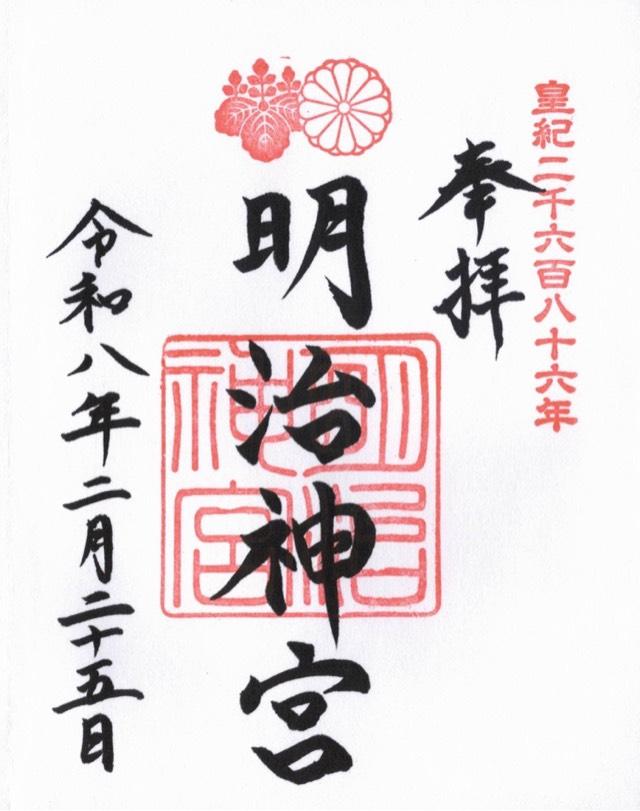 皇紀二千六百八十六年
奉拝
明治神宮
明治神宮
令和八年二月二十五日